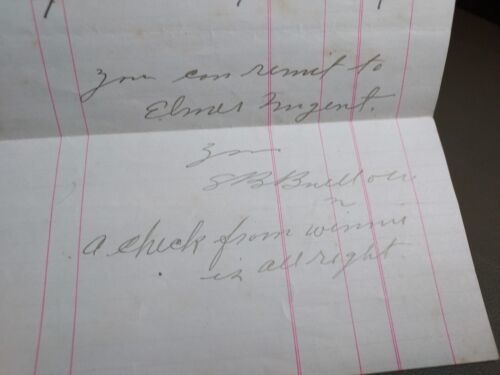 you can remit to
Elmer Nugent.
S B
a check from winnie
is all right.